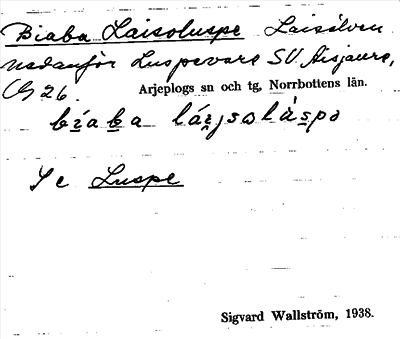 Biaba Laisoluspe Laisälven
nedanför Luspevare SV Aisjaure,
G 26. Arjeplogs sn och tg, Norrbottens län.
Se Luspe
Sigvard Wallström, 1938.